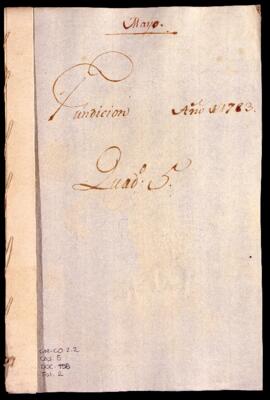 Mayo.
Fundicion Año d 1783.
Quad.º 5.
CAJ. 5
DOC. 156
Fol. 2